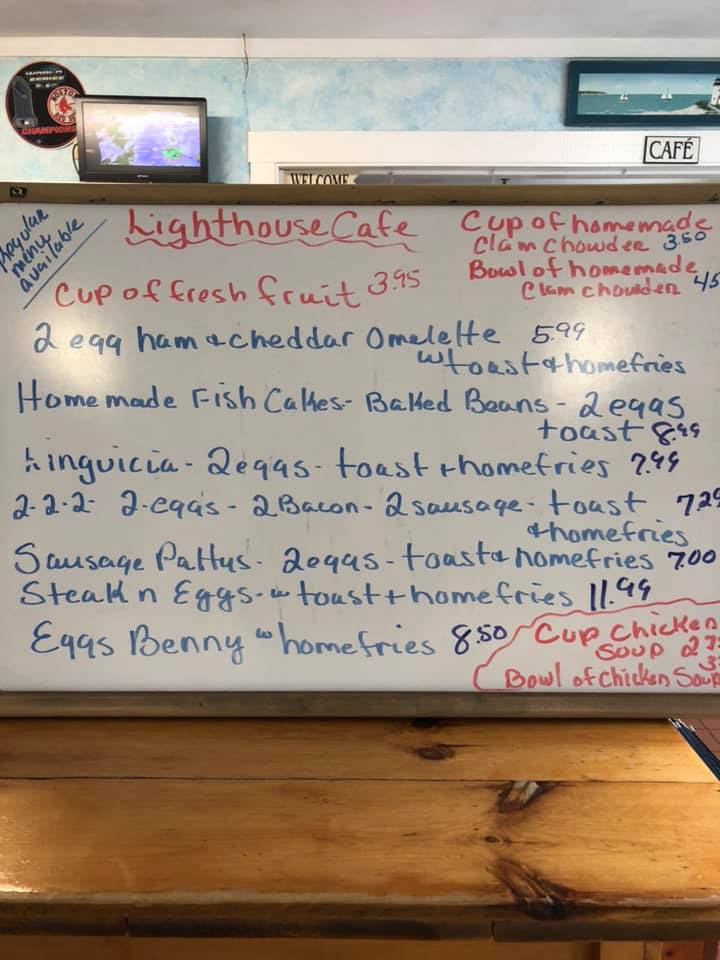 WORLD SERIES
BOSTON
RED SOX
CHAMPIONS
CAFÉ
WELCOME
Regular
menu
available
Lighthouse Cafe
Cup of homemade
Clam Chowder 3.50
Bowl of homemade
Clam chowder
Cup of fresh fruit 3.95
2 egg ham & cheddar Omelette 5.99
w toast & homefries
Homemade Fish Cakes- Baked Beans - 2 eggs
toast 8.99
Linguicia - 2 eggs - toast + homefries 7.99
2-2-2- 2-eggs - 2 Bacon - 2 sausage - toast
& homefries
Sausage Pattys - 2 eggs - toast & homefries 7.00
Steak n Eggs - w toast + homefries 11.99
Eggs Benny w homefries 8.50
Cup Chicken
Soup
Bowl of Chicken Soup